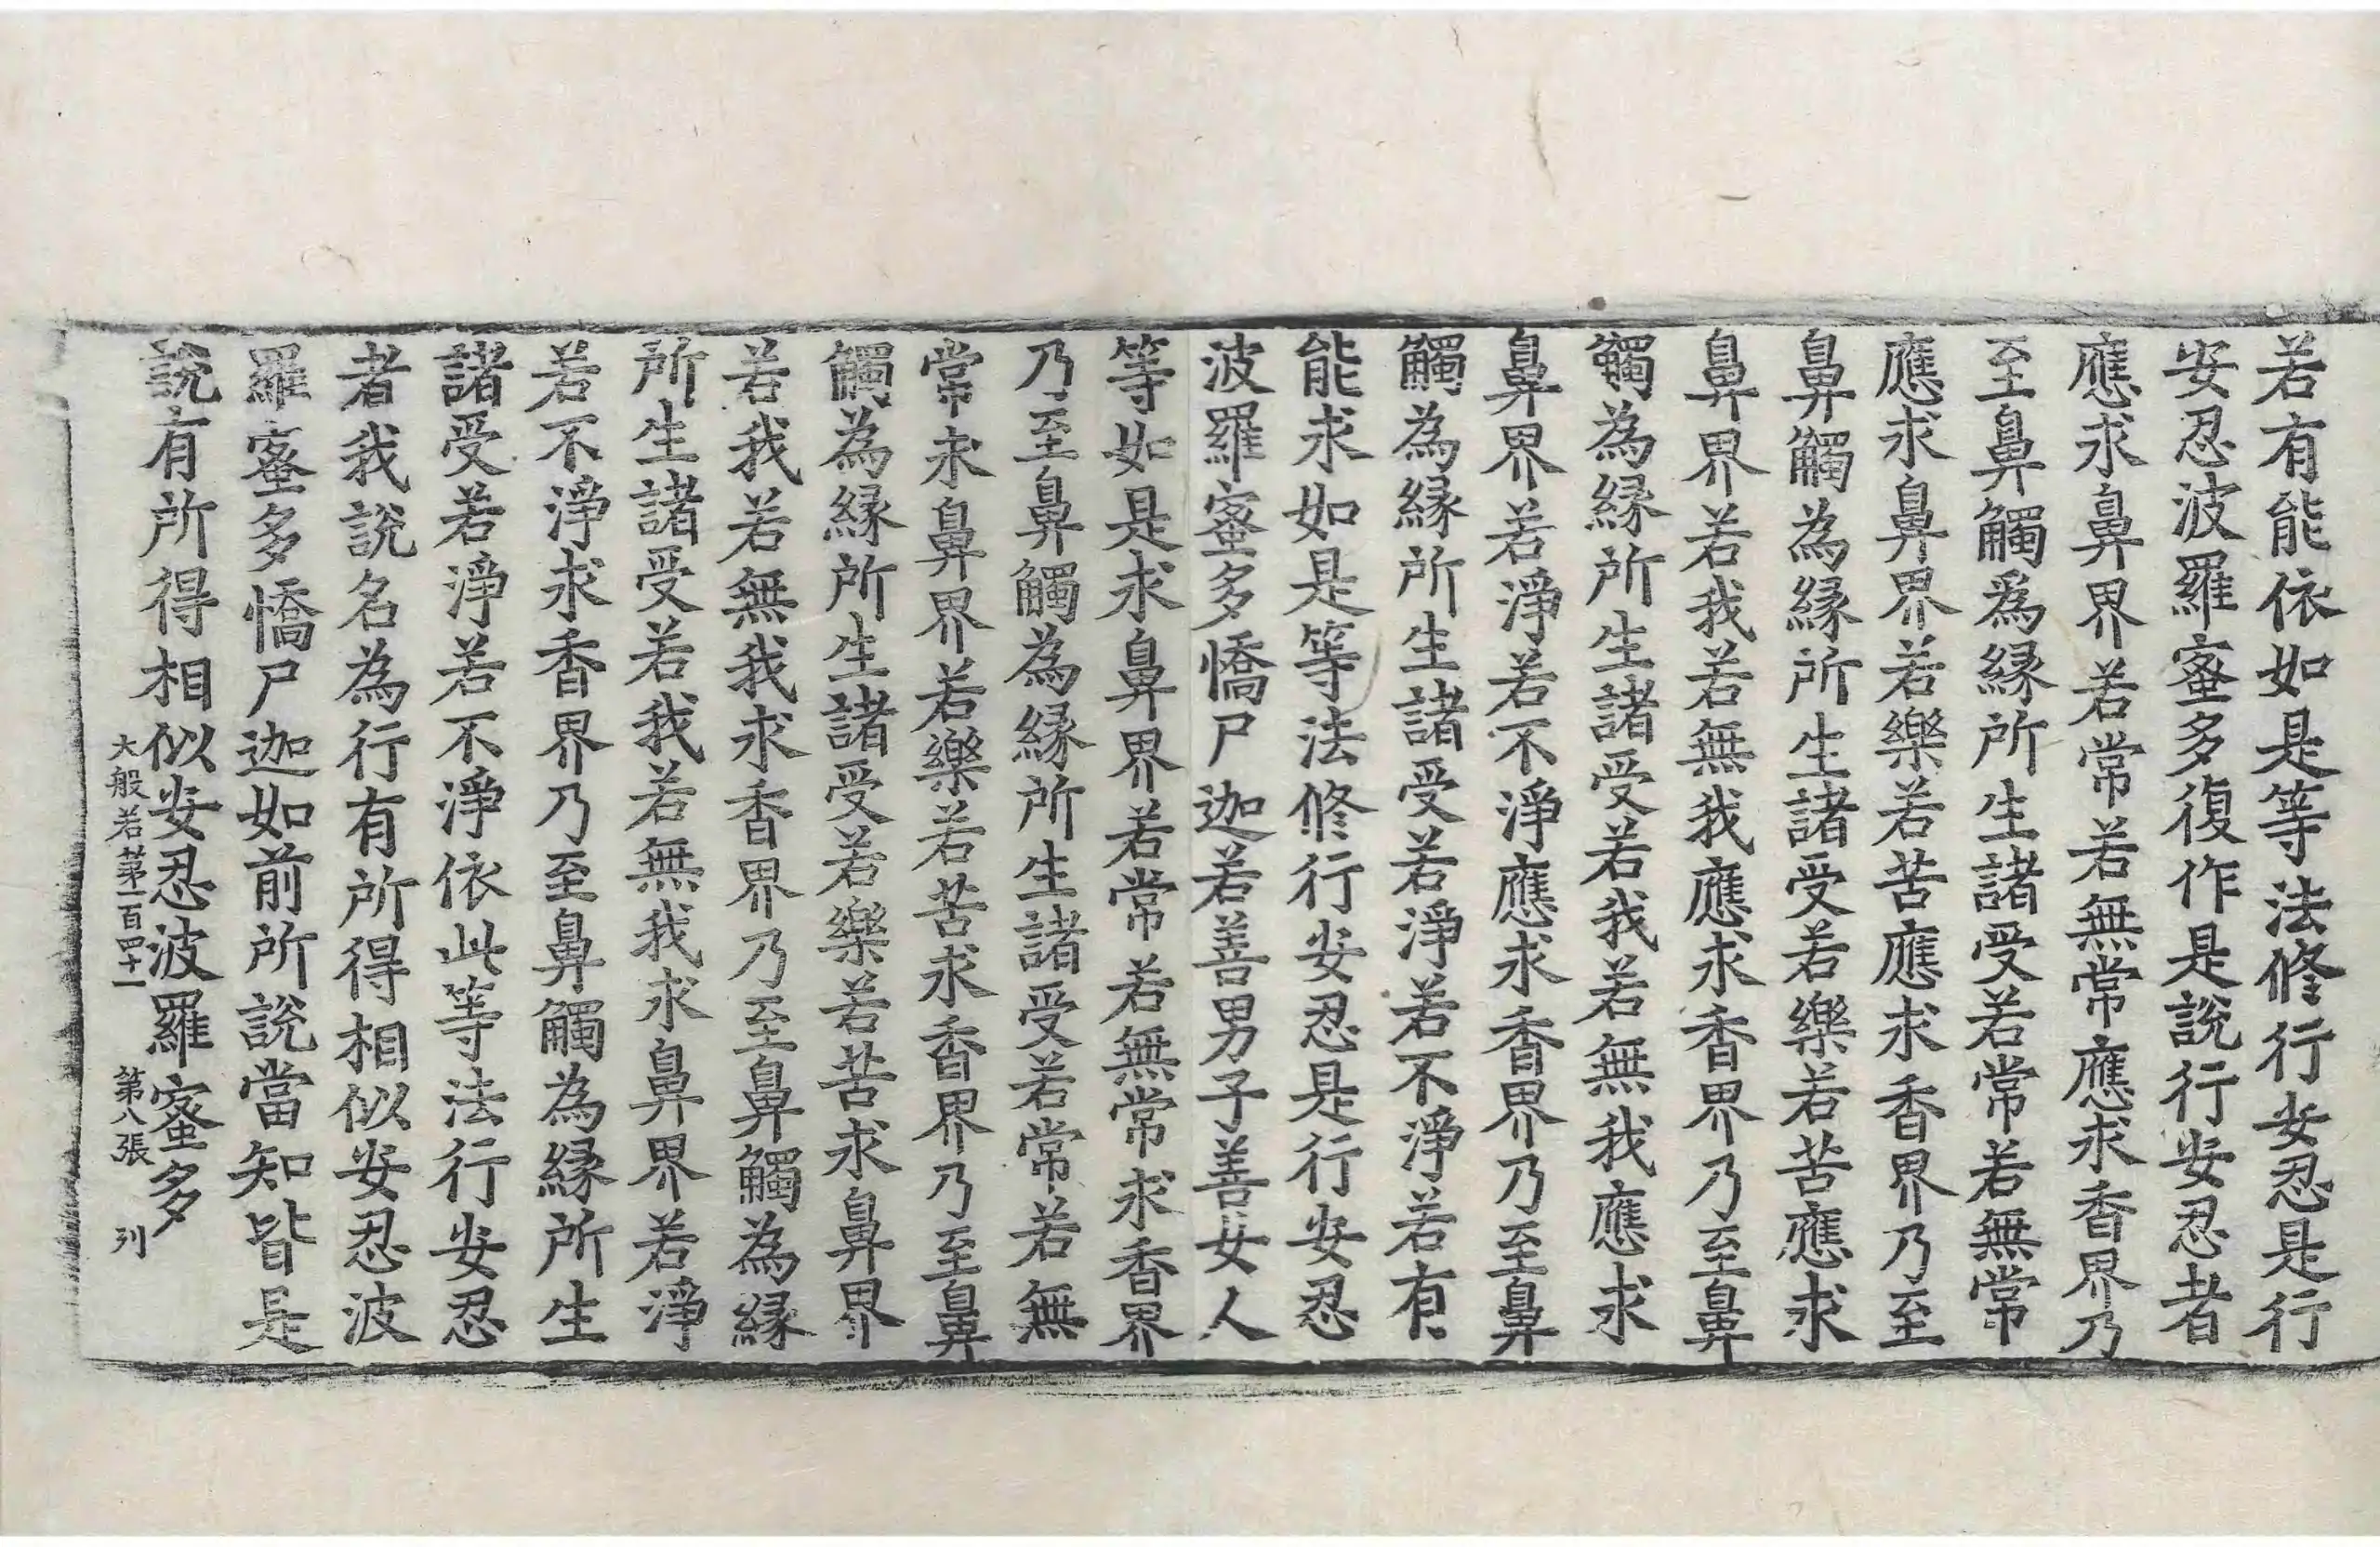 若有能依如是等法修行安忍是行
安忍波羅蜜多復作是說行安忍者
應求鼻界若常若無常應求香界乃
至鼻觸爲緣所生諸受若常若無常
應求鼻界若樂若苦應求香界乃至
鼻觸為緣所生諸受若樂若苦應求
鼻界若我若無我應求香界乃至鼻
觸為緣所生諸受若我若無我應求
鼻界若淨若不淨應求香界乃至鼻
觸為緣所生諸受若淨若不淨若有
能求如是等法修行安忍是行安忍
波羅蜜多憍尸迦若善男子善女人
等如是求鼻界若常若無常求香界
乃至鼻觸為緣所生諸受若常若無
常求鼻界若樂若苦求香界乃至鼻
觸為緣所生諸受若樂若苦求鼻界
若我若無我求香界乃至鼻觸為緣
所生諸受若我若無我求鼻界若淨
若不淨求香界乃至鼻觸為緣所生
諸受若淨若不淨依此等法行安忍
者我說名為行有所得相似安忍波
羅蜜多憍尸迦如前所說當知皆是
說有所得相似安忍波羅蜜多
大般若第一百四十一 第八張 列